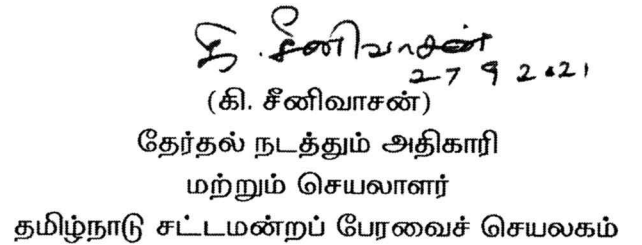 கி. சீனிவாசன்
27 9 2021
(கி. சீனிவாசன்)
தேர்தல் நடத்தும் அதிகாரி
மற்றும் செயலாளர்
தமிழ்நாடு சட்டமன்றப் பேரவைச் செயலகம்